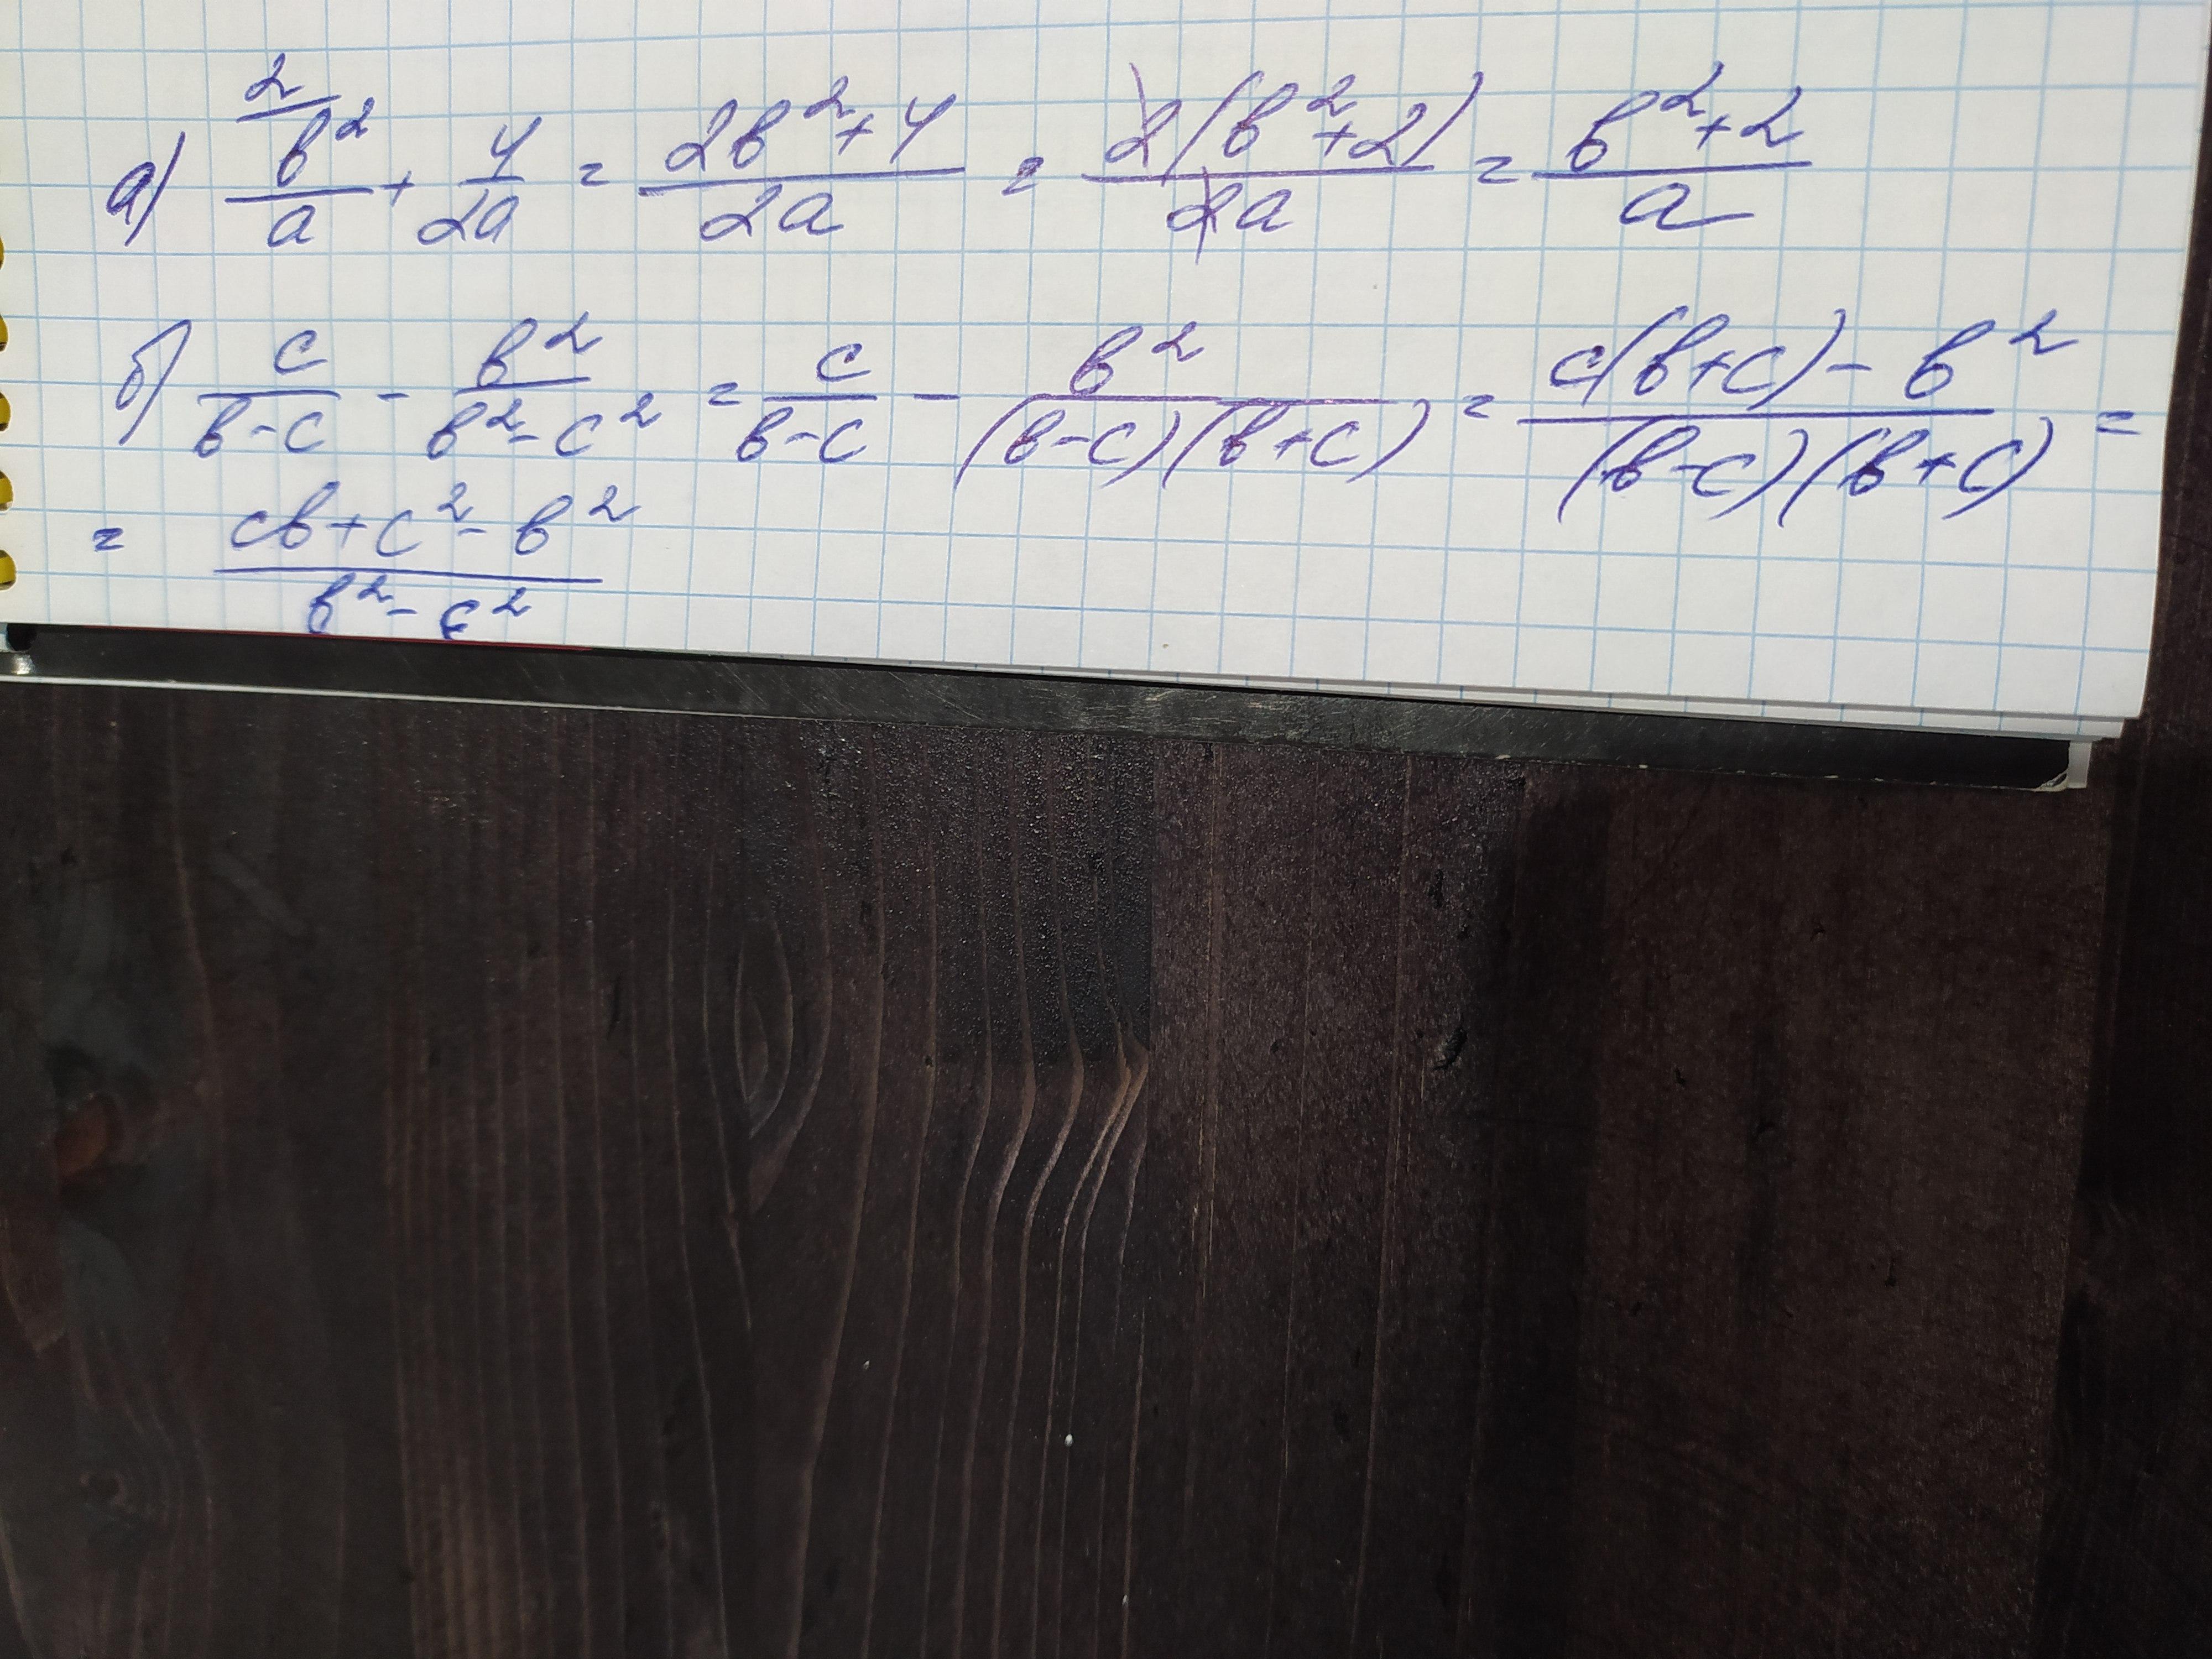 а) 2/ b²/a + 4/2a = (2b²+4)/2a = 2(b²+2)/2a = (b²+2)/a
б) c/(b-c) - b²/(b²-c²) = c/(b-c) - b²/((b-c)(b+c)) = (c(b+c)-b²)/((b-c)(b+c)) =
= (cb+c²-b²)/(b²-c²)